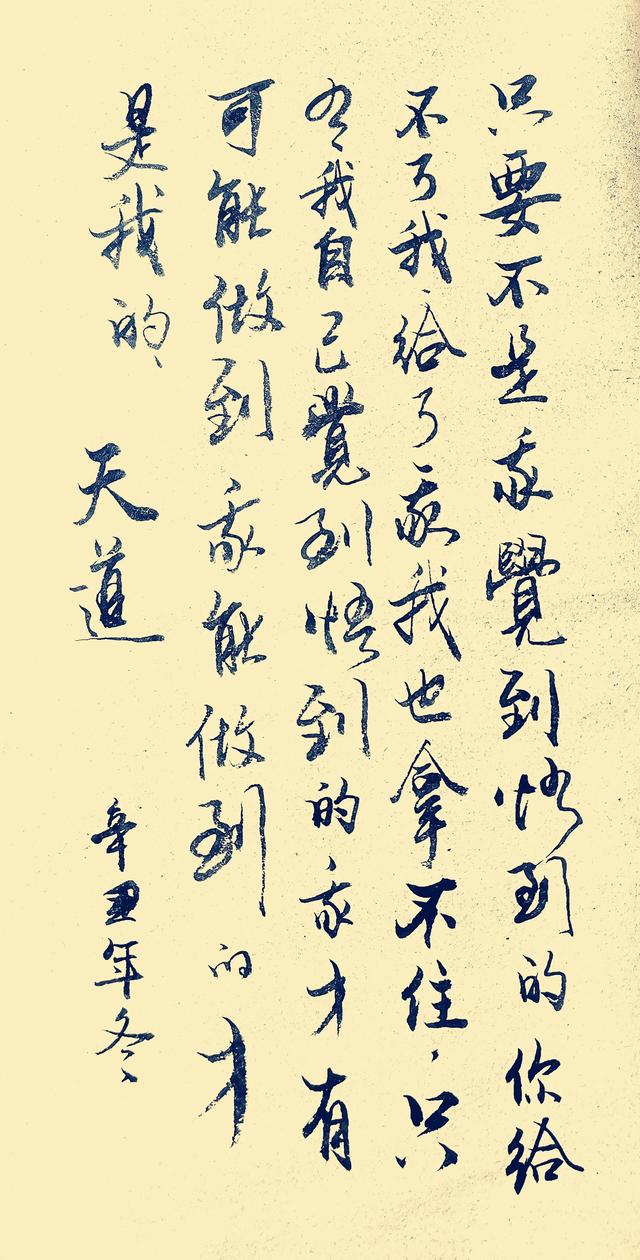 只要不是我覺到悟到的你給
不了我給了我我也拿不住只
有我自己覺到悟到的我才有
可能做到我能做到的才
是我的
天道
辛丑年冬